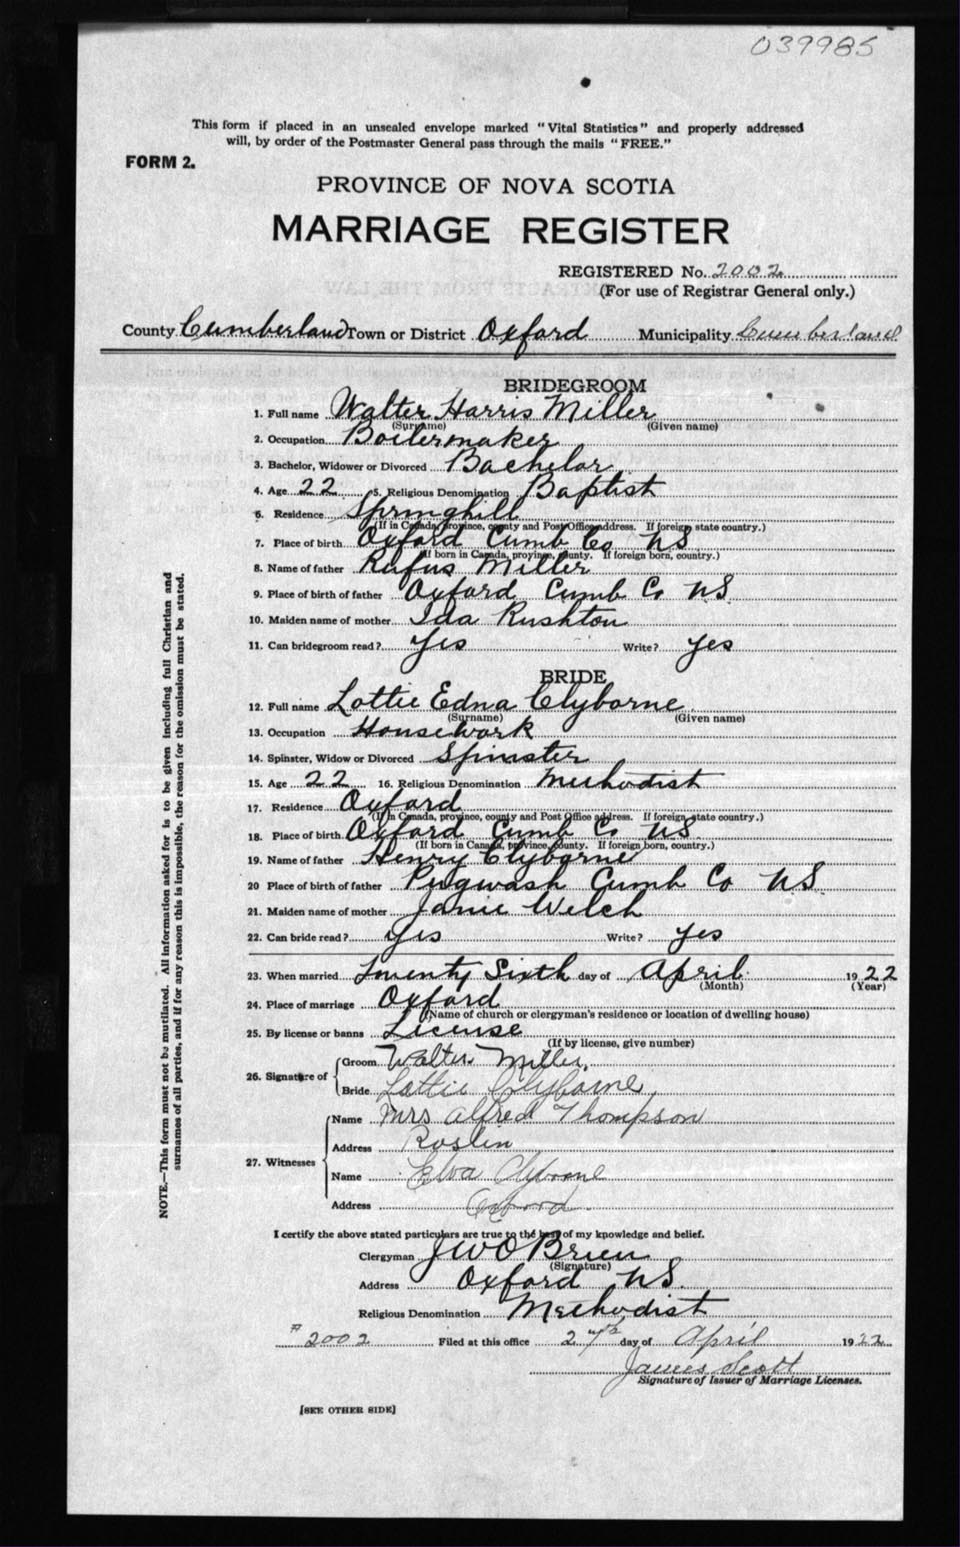 039985
This form if placed in an unsealed envelope marked "Vital Statistics" and properly addressed
will, by order of the Postmaster General pass through the mails "FREE."
FORM 2.
PROVINCE OF NOVA SCOTIA
MARRIAGE REGISTER
REGISTERED No. 2002
(For use of Registrar General only.)
County Cumberland Town or District Oxford Municipality Cumberland
BRIDEGROOM
1. Full name Walter Harris Miller
(Surname) (Given name)
2. Occupation Boilermaker
3. Bachelor, Widower or Divorced Bachelor
4. Age 22 5. Religious Denomination Baptist
6. Residence Springhill
(If in Canada, province, county and Post Office address. If foreign state country.)
7. Place of birth Oxford Cumb Co NS
(If born in Canada, province, county. If foreign born, country.)
8. Name of father Rufus Miller
9. Place of birth of father Oxford Cumb Co N.S.
10. Maiden name of mother Ida Rushton
11. Can bridegroom read? Yes Write? yes
BRIDE
12. Full name Lottie Edna Clyborne
(Surname) (Given name)
13. Occupation Housework
14. Spinster, Widow or Divorced Spinster
15. Age 22 16. Religious Denomination Methodist
17. Residence Oxford
(If in Canada, province, county and Post Office address. If foreign, state country.)
18. Place of birth Oxford Cumb Co NS
(If born in Canada, province, county. If foreign born, country.)
19. Name of father Henry Clyborne
20 Place of birth of father Pugwash Cumb Co N.S.
21. Maiden name of mother Janie Welch
22. Can bride read? Yes Write? yes
23. When married Twenty Sixth day of April 1922
(Month) (Year)
24. Place of marriage Oxford
(Name of church or clergyman's residence or location of dwelling house)
25. By license or banns License
(If by license, give number)
26. Signature of
Groom Walter Miller.
Bride Lottie Clyborne
27. Witnesses
Name Mrs Alfred Thompson
Address Roslin
Name Elva Clyborne
Address Oxford
I certify the above stated particulars are true to the best of my knowledge and belief.
Clergyman J W O'Brien
(Signature)
Address Oxford NS.
Religious Denomination Methodist
# 2002 Filed at this office 27th day of April 1922
James Scott
Signature of Issuer of Marriage Licenses.
[SEE OTHER SIDE]
NOTE.—This form must not be mutilated. All information asked for is to be given including full Christian and
surnames of all parties, and if for any reason this is impossible, the reason for the omission must be stated.